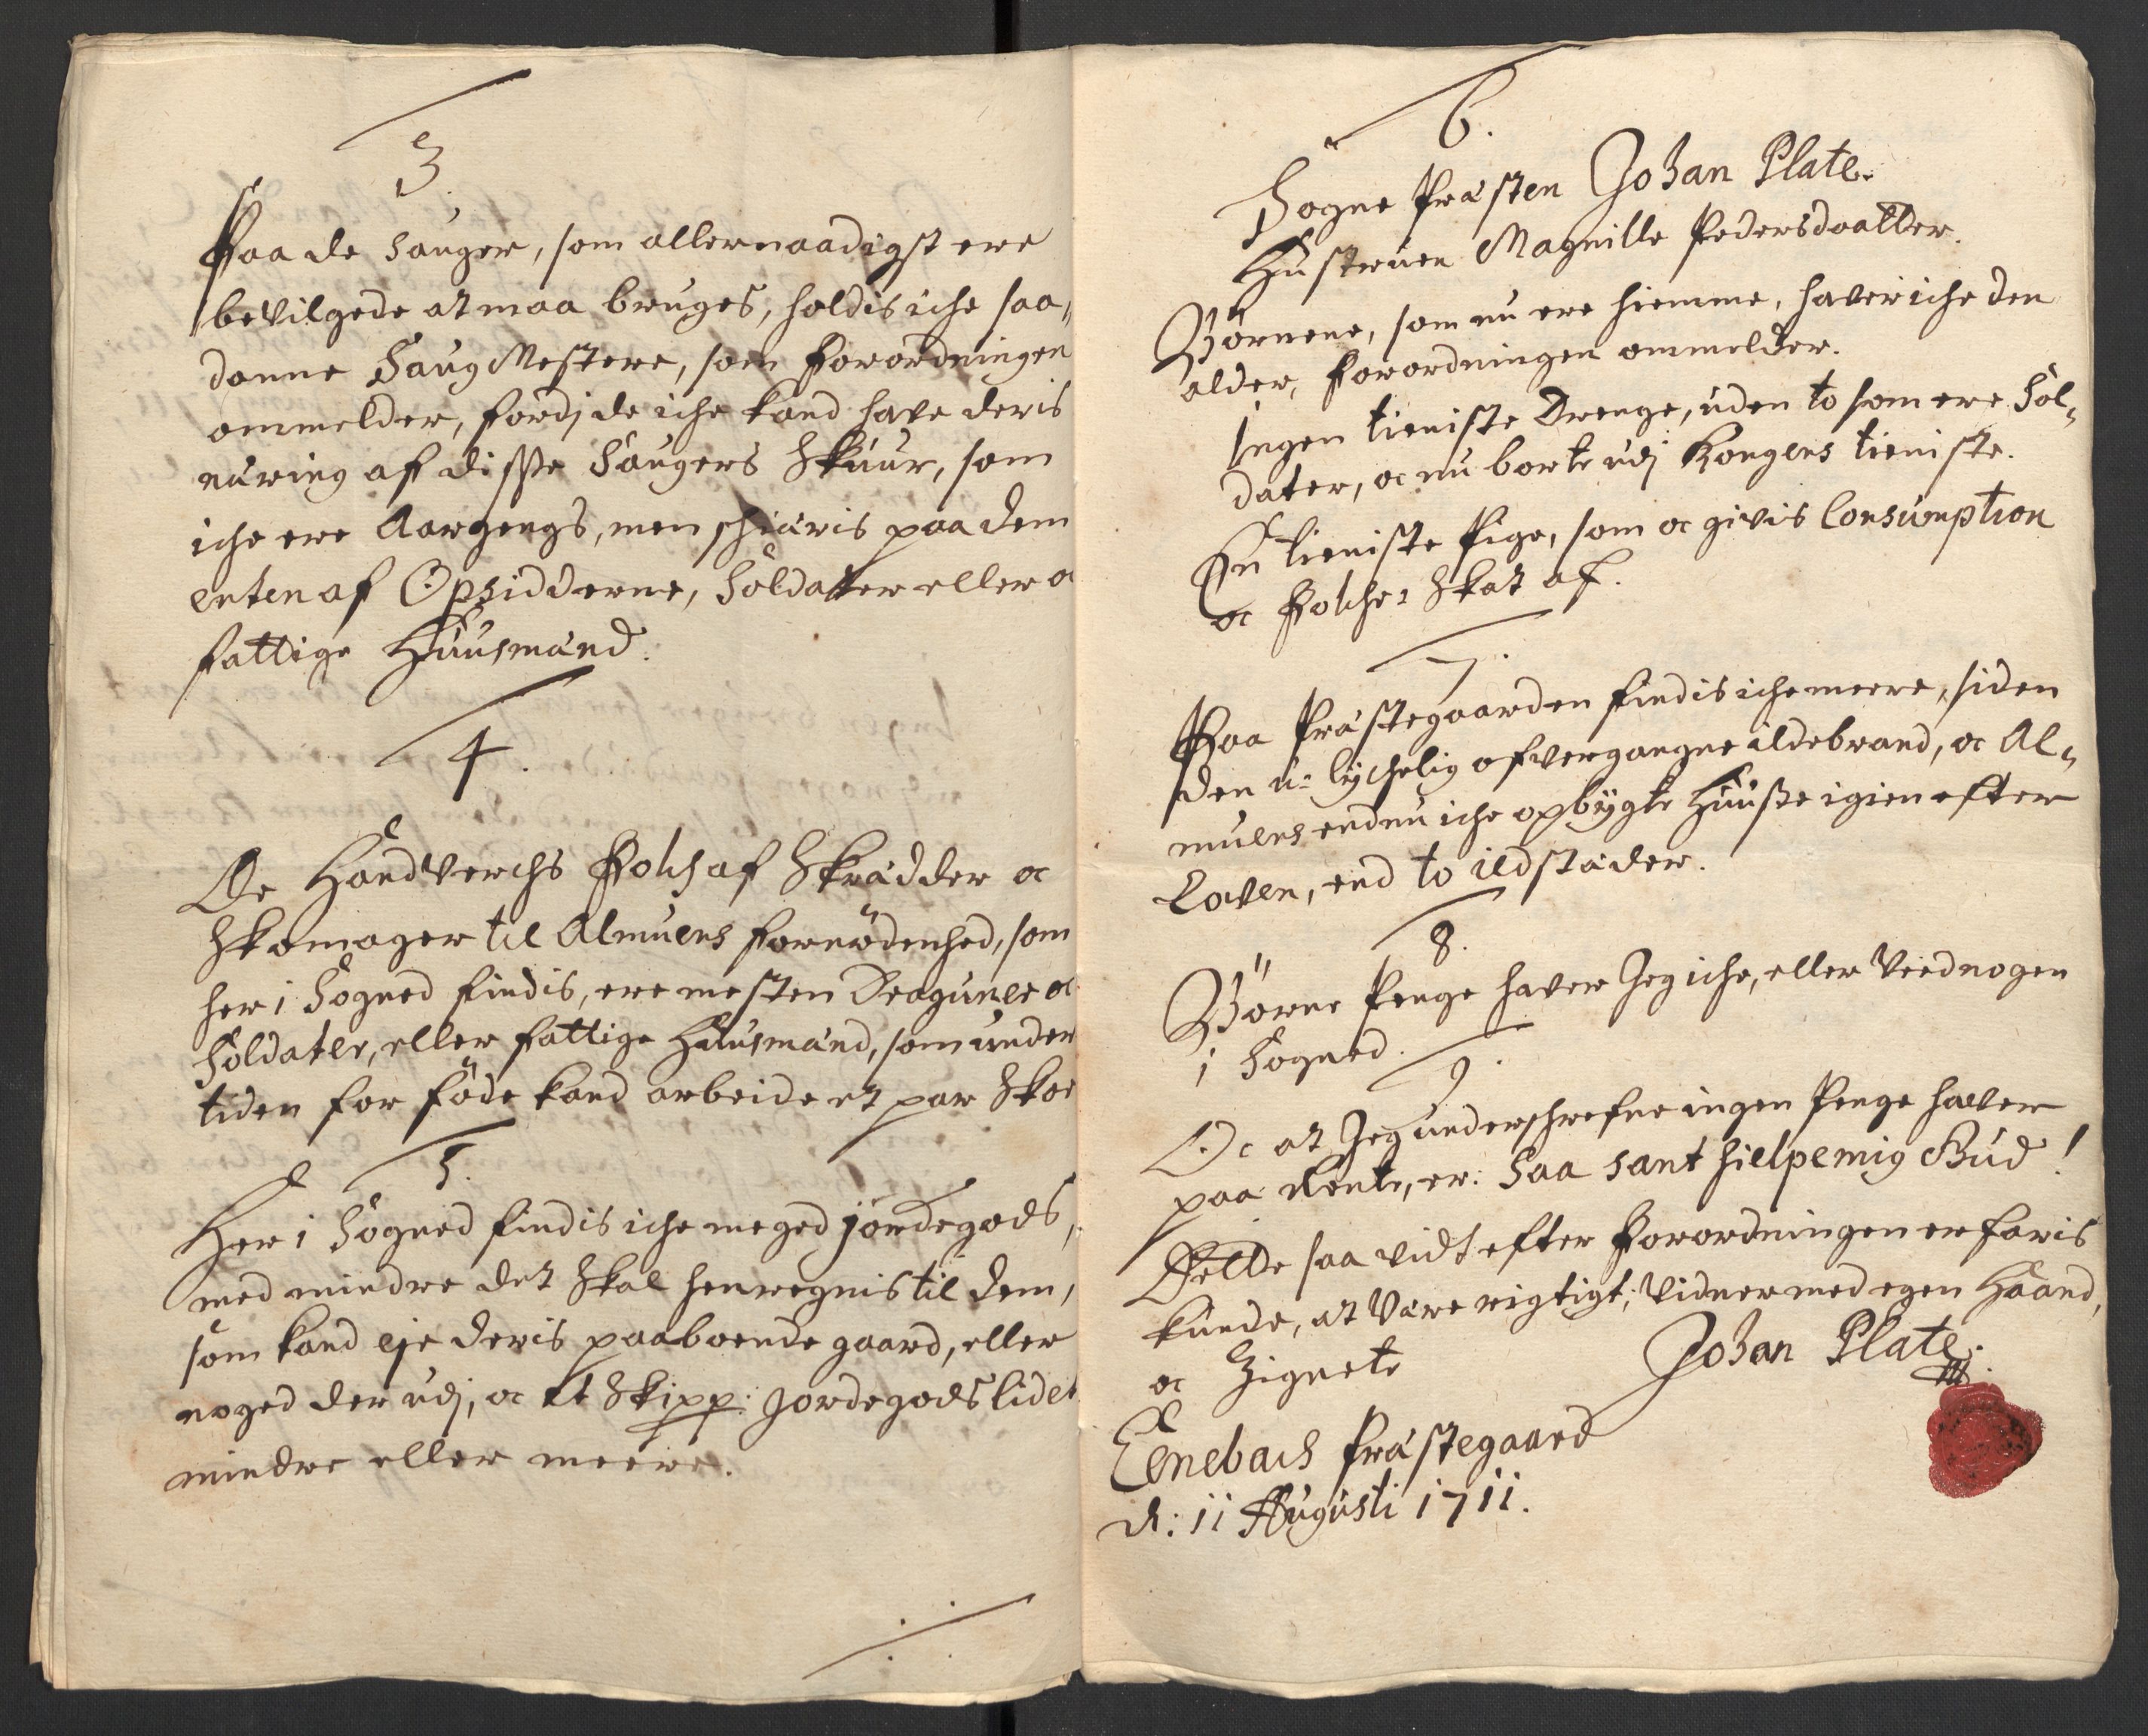 3.
Paa de Sauger, som allernaadigst ere
bevilgede at maa bruges, holdis iche saa„
danne Saug Mestere, som Forordningen
ommelder, fordj de iche kand have deris
næring af disse Saugers Skuur, som
iche ere Aargengs, men schiæris paa dem
enten af Opsidderne, Soldatter eller oc
fattige Huusmænd.
4.
De Handverchs Folch af Skrædder oc
Skomager til Almuens fornødenhed, som
her i Sogned findis, ere mesten Draguner oc
Soldater, eller fattige Huusmænd, som under
tiden for føde kand arbeide et par Skoe
5.
Her i Sogned findis iche meged jordegods,
med mindre det Skal henregnis til dem,
som kand eje deris paaboende gaard, eller
noged der udj, oc et Skipp: Jordegods lidet
mindre eller meere.
6.
Sogne Præsten Johan Plate.
Hustruen Magnille Pedersdaatter.
Børnene, som nu ere hiemme, haver iche den
alder, Forordningen ommelder.
Ingen tieniste Drenge, uden to som ere Sol„
dater, oc nu borte udj Kongens tieniste.
En tieniste Pige, som oc givis Consumption
oc Folche Skat af.
7.
Paa Præstegaarden findis iche meere, siden
den u-lychelig ofvergangne ildebrand, oc Al„
muens endnu iche opbygte Huuse igien efter
Loven, end to ildstæder.
8.
Børne Penge haver Jeg iche, eller Veed nogen
i Sogned.
9.
Oc at Jeg underschrefne ingen Penge haver
paa Rente, er: Saa sant hielpe mig Gud!
Dette saa vidt efter Forordningen erfaris
kunde, at være rigtigt; Vidner med egen Haand,
oc Zignete
Johan Plate.
Enebach Præstegaard
d: 11 Augusti 1711.